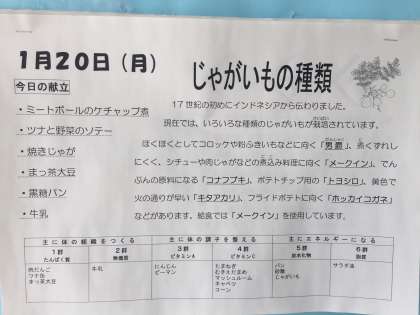 1月20日（月）
今日の献立
・ミートボールのケチャップ煮
・ツナと野菜のソテー
・焼きじゃが
・まっ茶大豆
・黒糖パン
・牛乳
じゃがいもの種類
17世紀の初めにインドネシアから伝わりました。
現在では、いろいろな種類のじゃがいもが栽培されています。
ほくほくとしてコロッケや粉ふきいもなどに向く「男爵」、煮くずれし
にくく、シチューや肉じゃがなどの煮込み料理に向く「メークイン」、でん
ぷんの原料になる「コナフブキ」、ポテトチップ用の「トヨシロ」、黄色で
火の通りが早い「キタアカリ」、フライドポテトに向く「ホッカイコガネ」
などがあります。給食では「メークイン」を使用しています。
主に体の組織をつくる 主に体の調子を整える 主にエネルギーになる
1群 2群 3群 4群 5群 6群
たんぱく質 無機質 ビタミンA ビタミンC 炭水化物 脂質
肉だんご 牛乳 にんじん たまねぎ パン サラダ油
ツナ缶 ピーマン むきえだまめ 砂糖
まっ茶大豆 マッシュルーム じゃがいも
キャベツ
コーン